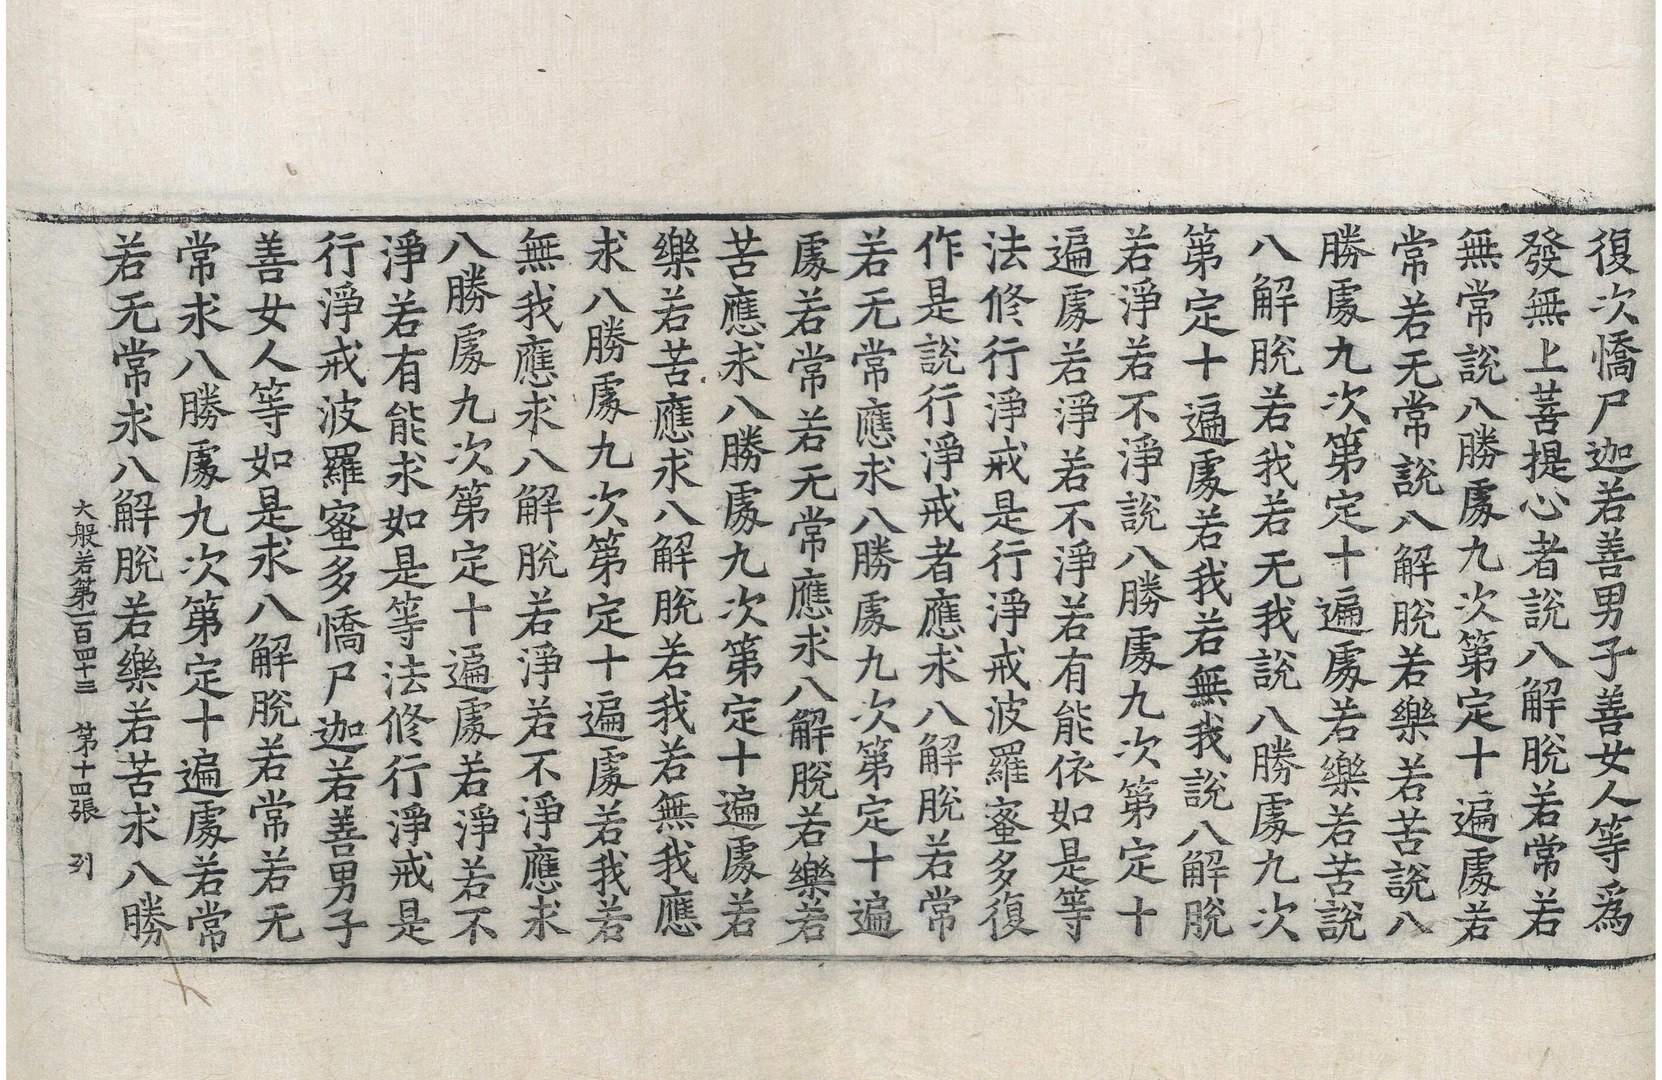 復次憍尸迦若善男子善女人等爲
發無上菩提心者說八解脫若常若
無常說八勝處九次第定十遍處若
常若无常說八解脫若樂若苦說八
勝處九次第定十遍處若樂若苦說
八解脫若我若无我說八勝處九次
第定十遍處若我若無我說八解脫
若淨若不淨說八勝處九次第定十
遍處若淨若不淨若有能依如是等
法修行淨戒是行淨戒波羅蜜多復
作是說行淨戒者應求八解脫若常
若无常應求八勝處九次第定十遍
處若常若无常應求八解脫若樂若
苦應求八勝處九次第定十遍處若
樂若苦應求八解脫若我若無我應
求八勝處九次第定十遍處若我若
無我應求八解脫若淨若不淨應求
八勝處九次第定十遍處若淨若不
淨若有能求如是等法修行淨戒是
行淨戒波羅蜜多憍尸迦若善男子
善女人等如是求八解脫若常若无
常求八勝處九次第定十遍處若常
若无常求八解脫若樂若苦求八勝
大般若第一百四十三 第十四張 列